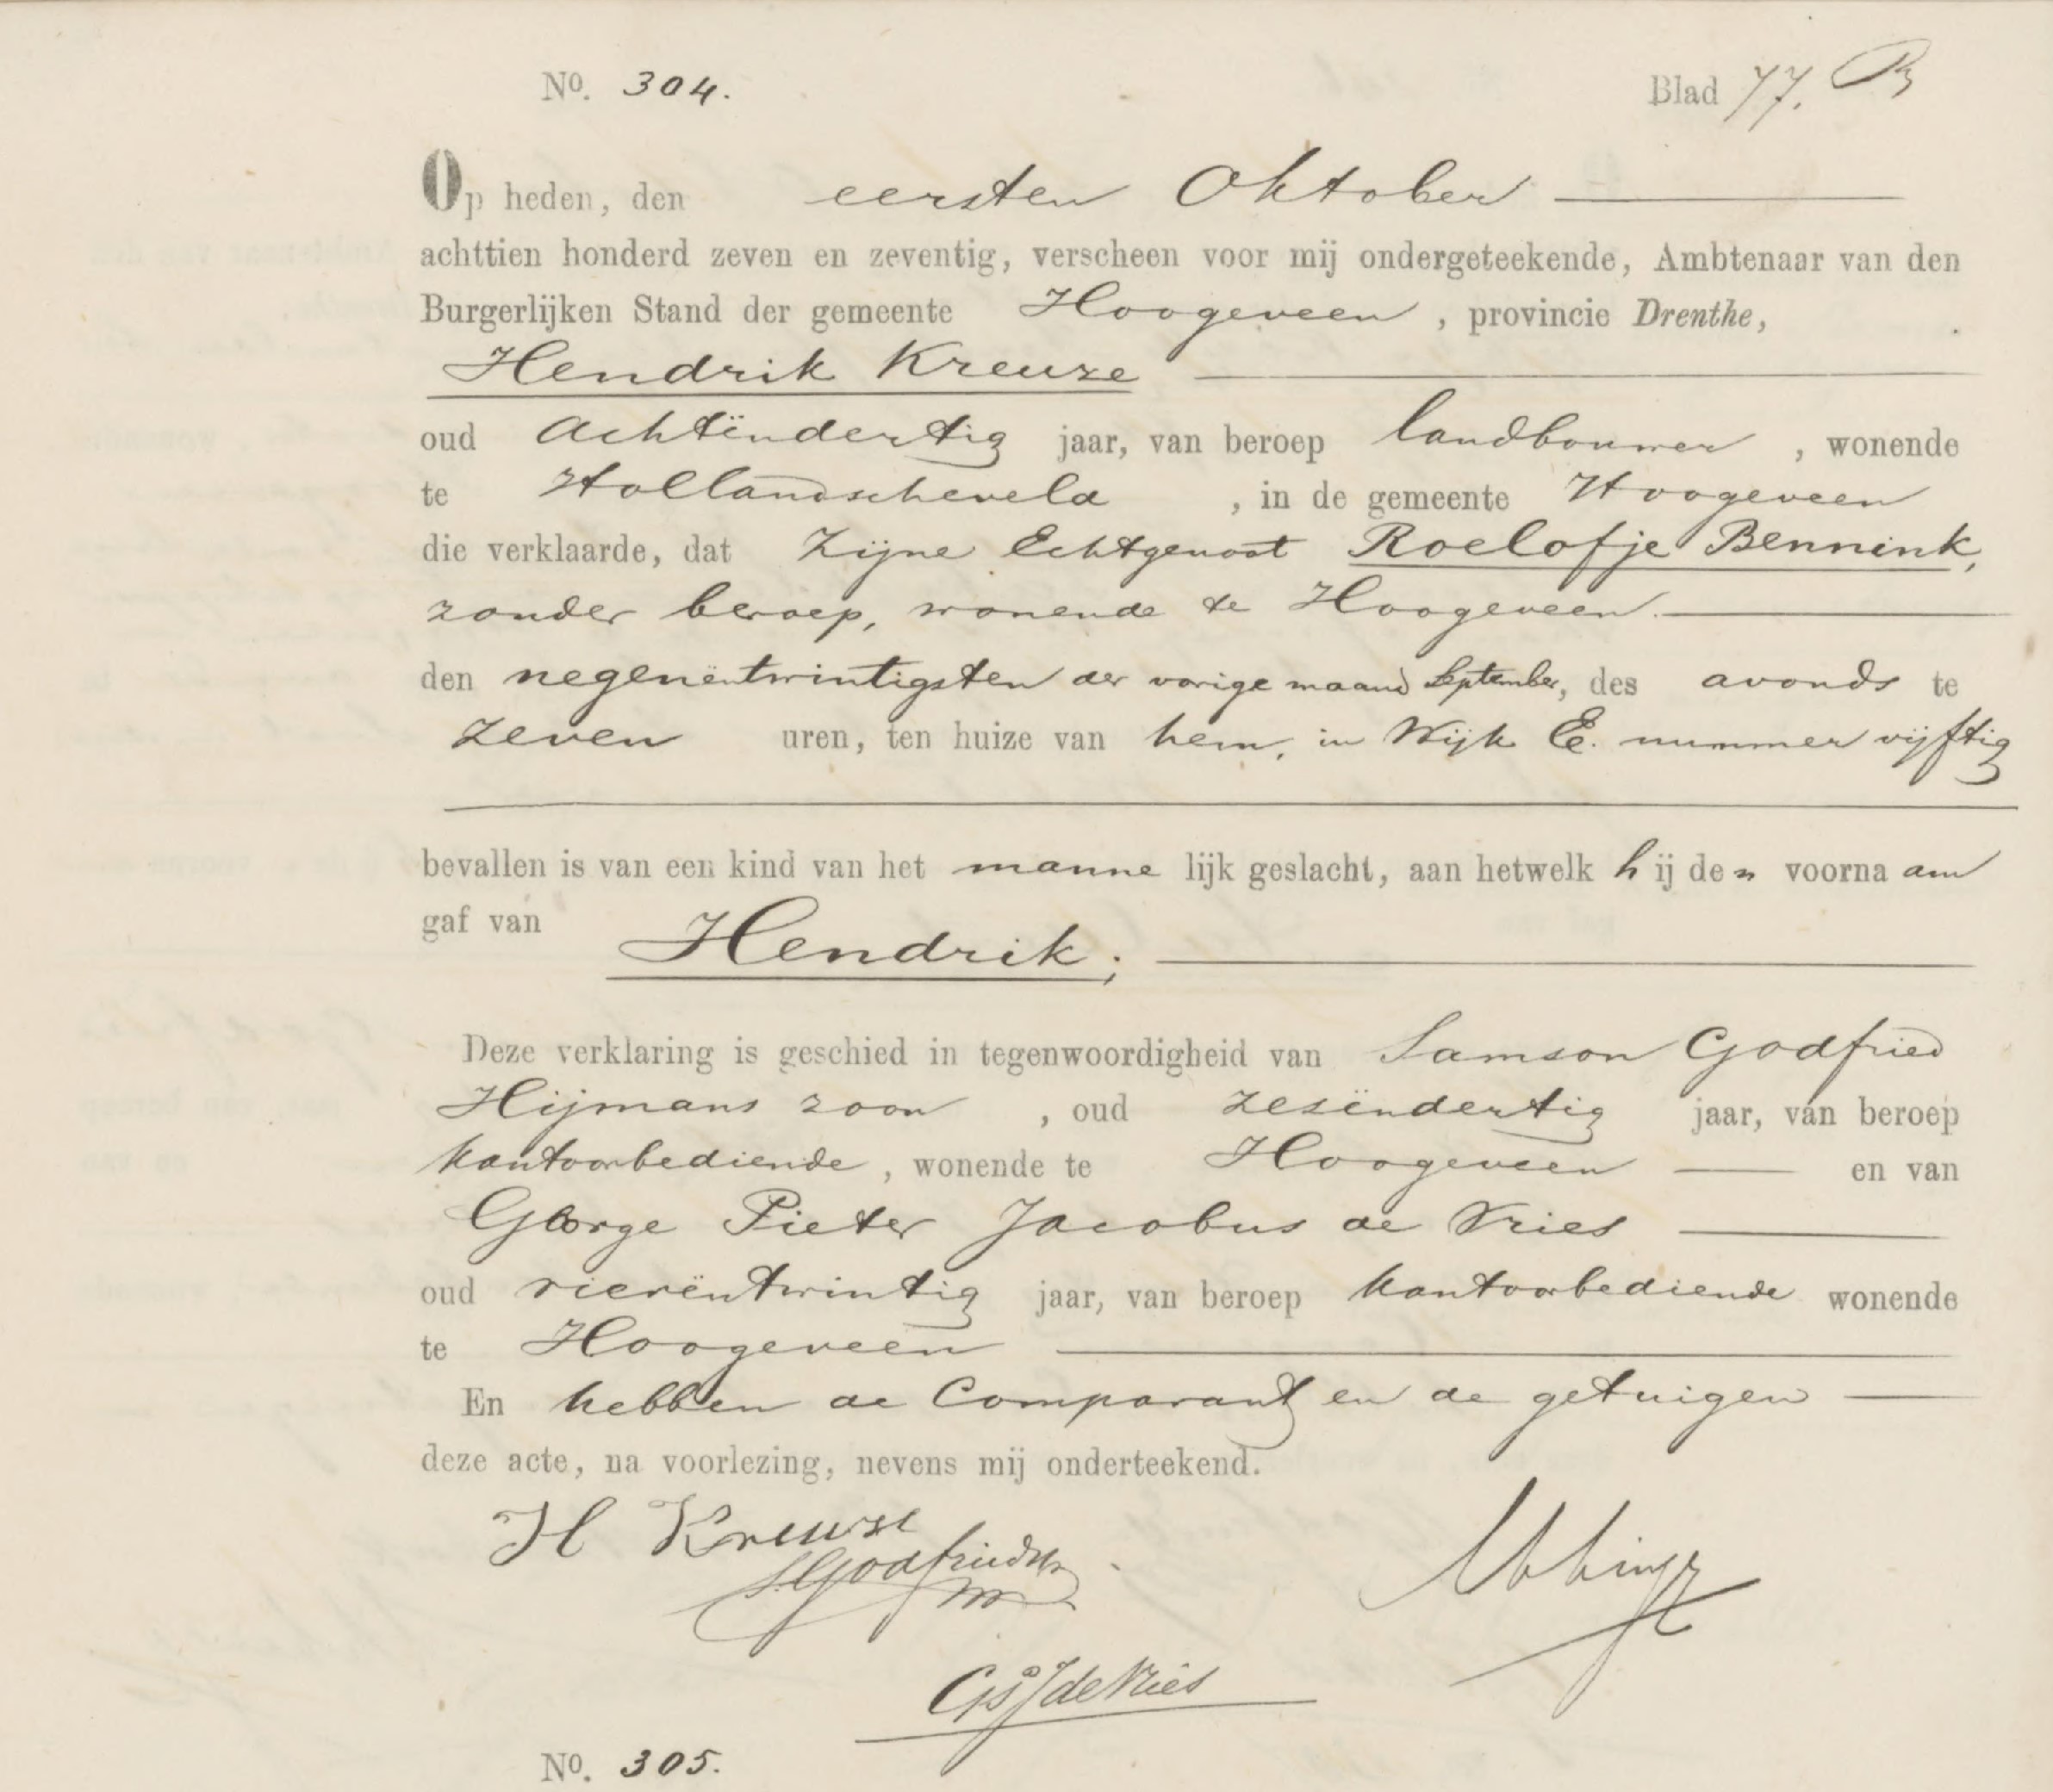 No. 304. Blad 77. B
Op heden, den eersten Oktober
achttien honderd zeven en zeventig, verscheen voor mij ondergeteekende, Ambtenaar van den
Burgerlijken Stand der gemeente Hoogeveen, provincie Drenthe,
Hendrik Kreuze
oud achtëndertig jaar, van beroep landbouwer, wonende
te Hollandscheveld, in de gemeente Hoogeveen
die verklaarde, dat Zijne Echtgenoot Roelofje Bennink,
zonder beroep, wonende te Hoogeveen.
den negenëntwintigsten der vorige maand September, des avonds te
zeven uren, ten huize van hem, in Wijk E. nummer vijftig
bevallen is van een kind van het mannelijk geslacht, aan hetwelk hij den voornaam
gaf van Hendrik;
Deze verklaring is geschied in tegenwoordigheid van Samson Godfried
Hijmans zoon, oud zesëndertig jaar, van beroep
kantoorbediende, wonende te Hoogeveen en van
George Pieter Jacobus de Vries
oud vierëntwintig jaar, van beroep kantoorbediende wonende
te Hoogeveen
En hebben de Comparant en de getuigen
deze acte, na voorlezing, nevens mij onderteekend.
H Kreuze
S. Godfried
GPJ de Vries
No. 305.